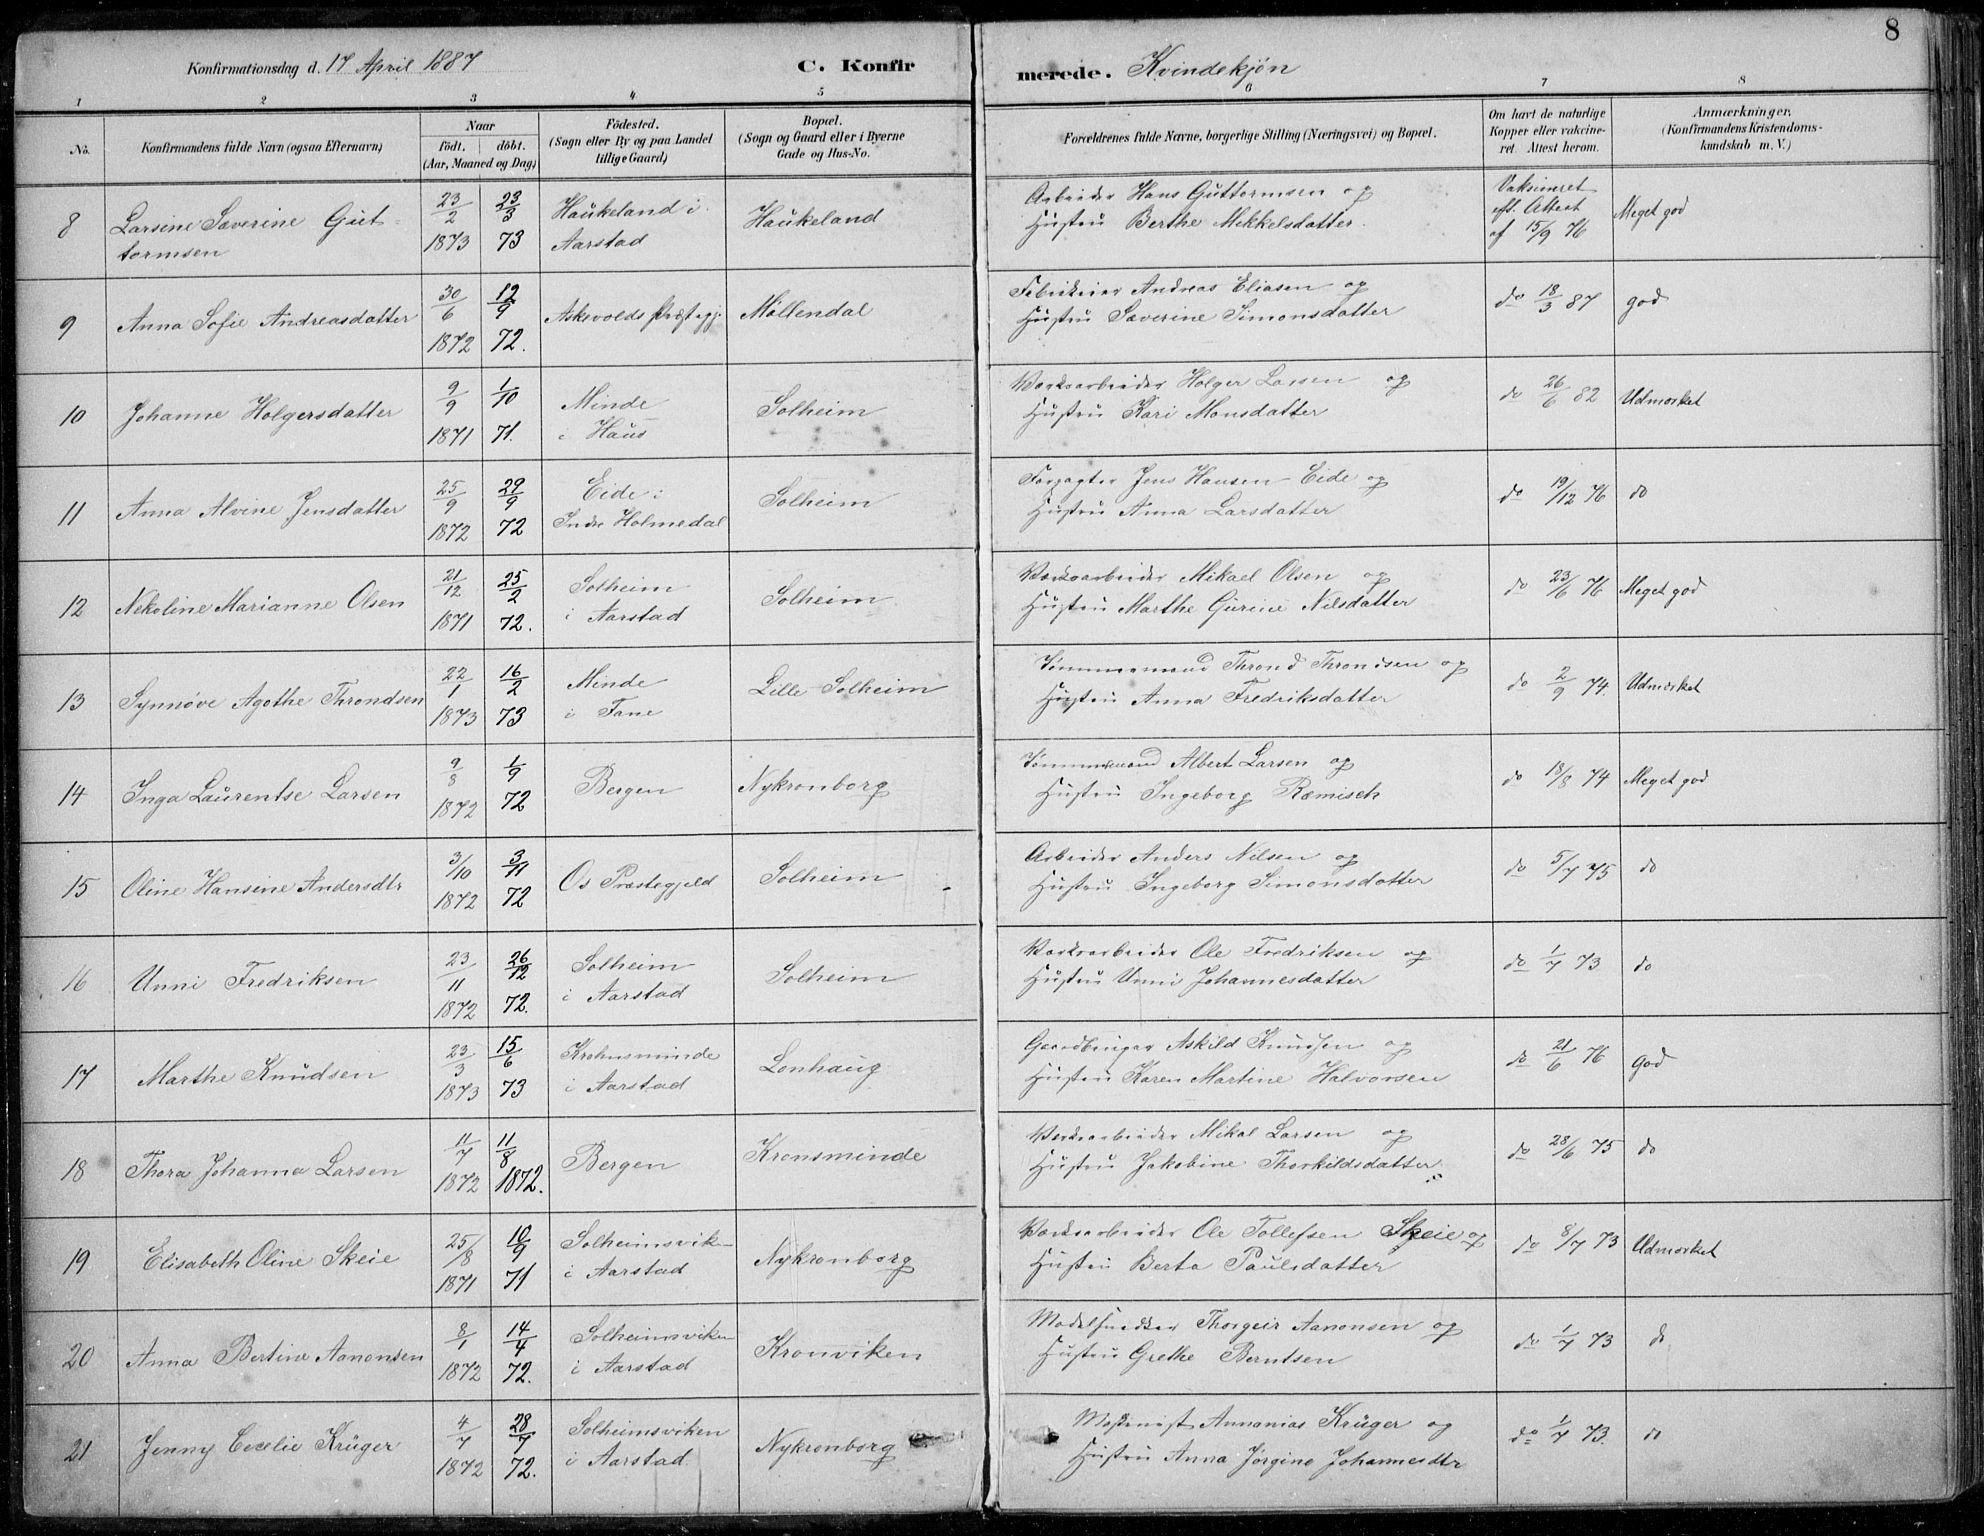 8
Konfirmationsdag d. 17 April 1887
C. Konfirmerede. Kvindekjøn
1 2 3 4 5 6 7 8
No. Konfirmandens fulde Navn (ogsaa Efternavn)
Naar födt. döbt. (Aar, Maaned og Dag)
Födested. (Sogn eller By og paa Landet tillige Gaard)
Bopæl. (Sogn og Gaard eller i Byerne Gade og Hus-No.
Forældrenes fulde Navne, borgerlige Stilling (Næringsvei) og Bopæl.
Om havt de naturlige Kopper eller vakcineret. Attest herom.
Anmærkninger. (Konfirmandens Kristendomskundskab m. V.)
8 Larsine Severine Gut- 23/2 23/3 Haukeland i Haukeland Arbeider Hans Guttormsen og Vaksineret
tormsen 1873 73 Aarstad Hustru Berthe Mikkelsdatter. efl. Attest Meget god
af 15/9 76
9 Anna Sofie Andreasdatter 30/6 12/9 Askevolds Præstegj. Möllendal Andreas Eliasen og do 18/3 87 god
1872 72. Hustru Severine Simonsdatter
10 Johanne Holgersdatter 9/9 1/10 Minde Solheim Værksarbeider Holger Larsen og do 26/6 82 Udmærket
1871 71. i Haus Hustru Kari Monsdatter
11 Anna Alvine Jensdatter 25/9 29/9 Eide i Solheim Forpagter Jens Hansen Eide og do 19/12 76 do
1872 72 Indre Holmedal Hustru Anna Larsdatter
12 Nekoline Marianne Olsen 21/12 25/2 Solheim Solheim Værksarbeider Mikael Olsen og do 23/6 76 Meget god
1871 72. i Aarstad Hustru Marthe Gurine Nilsdatter
13 Synnøve Agathe Throndsen 22/1 16/2 Minde Lille Solheim Tømmermand Thrond Throndsen og do 2/9 74. Udmærket
1873 73 i Fane Hustru Anna Fredriksdatter
14 Inga Laurentse Larsen 9/8 1/9 Bergen Nykronborg Tømmermand Albert Larsen og do 18/8 74 Meget god
1872 72 Hustru Ingeborg Ræmisch
15 Oline Hansine Andersdtr 3/10 3/11 Os Præstegjeld Solheim Arbeider Anders Nilsen og do 5/7 75 do
1872 72 Hustru Ingeborg Simonsdatter
16 Unni Fredriksen 23/11 26/12 Solheim Solheim Værksarbeider Ole Fredriksen og do 1/7 73 do
1872 72. i Aarstad Hustru Unni Johannesdatter
17 Marthe Knudsen 23/3 15/6 Krohnsminde Lonhaug Gaardbruger Askild Knudsen og do 21/6 76 God
1873 73 i Aarstad Hustru Karen Martine Halvorsen
18 Thora Johanna Larsen 11/7 11/8 Bergen Kronsminde Værksarbeider Mikal Larsen og do 28/6 75 do
1872 1872. Hustru Jakobine Thorkildsdatter
19 Elisabeth Oline Skeie 25/8 10/9 Solheimsvik- Nykronborg Værksarbeider Ole Tollefsen Skeie og do 8/7 73 Udmærket
1871 71 i Aarstad Hustru Berta Paulsdatter
20 Anna Bertine Aanonsen 8/1 14/4 Solheimsviken Kronviken Modelsnedker Thorgeir Aanonsen og do 1/7 73 do
1872 72. i Aarstad Hustru Grethe Berntsen
21 Jenny Cecelie Krüger 4/7 28/7 Solheimsviken Nykronborg Maskinist Annanias Krüger og do 1/7 73. do
1872 72. i Aarstad. Hustru Anna Jørgine Johannesdtr